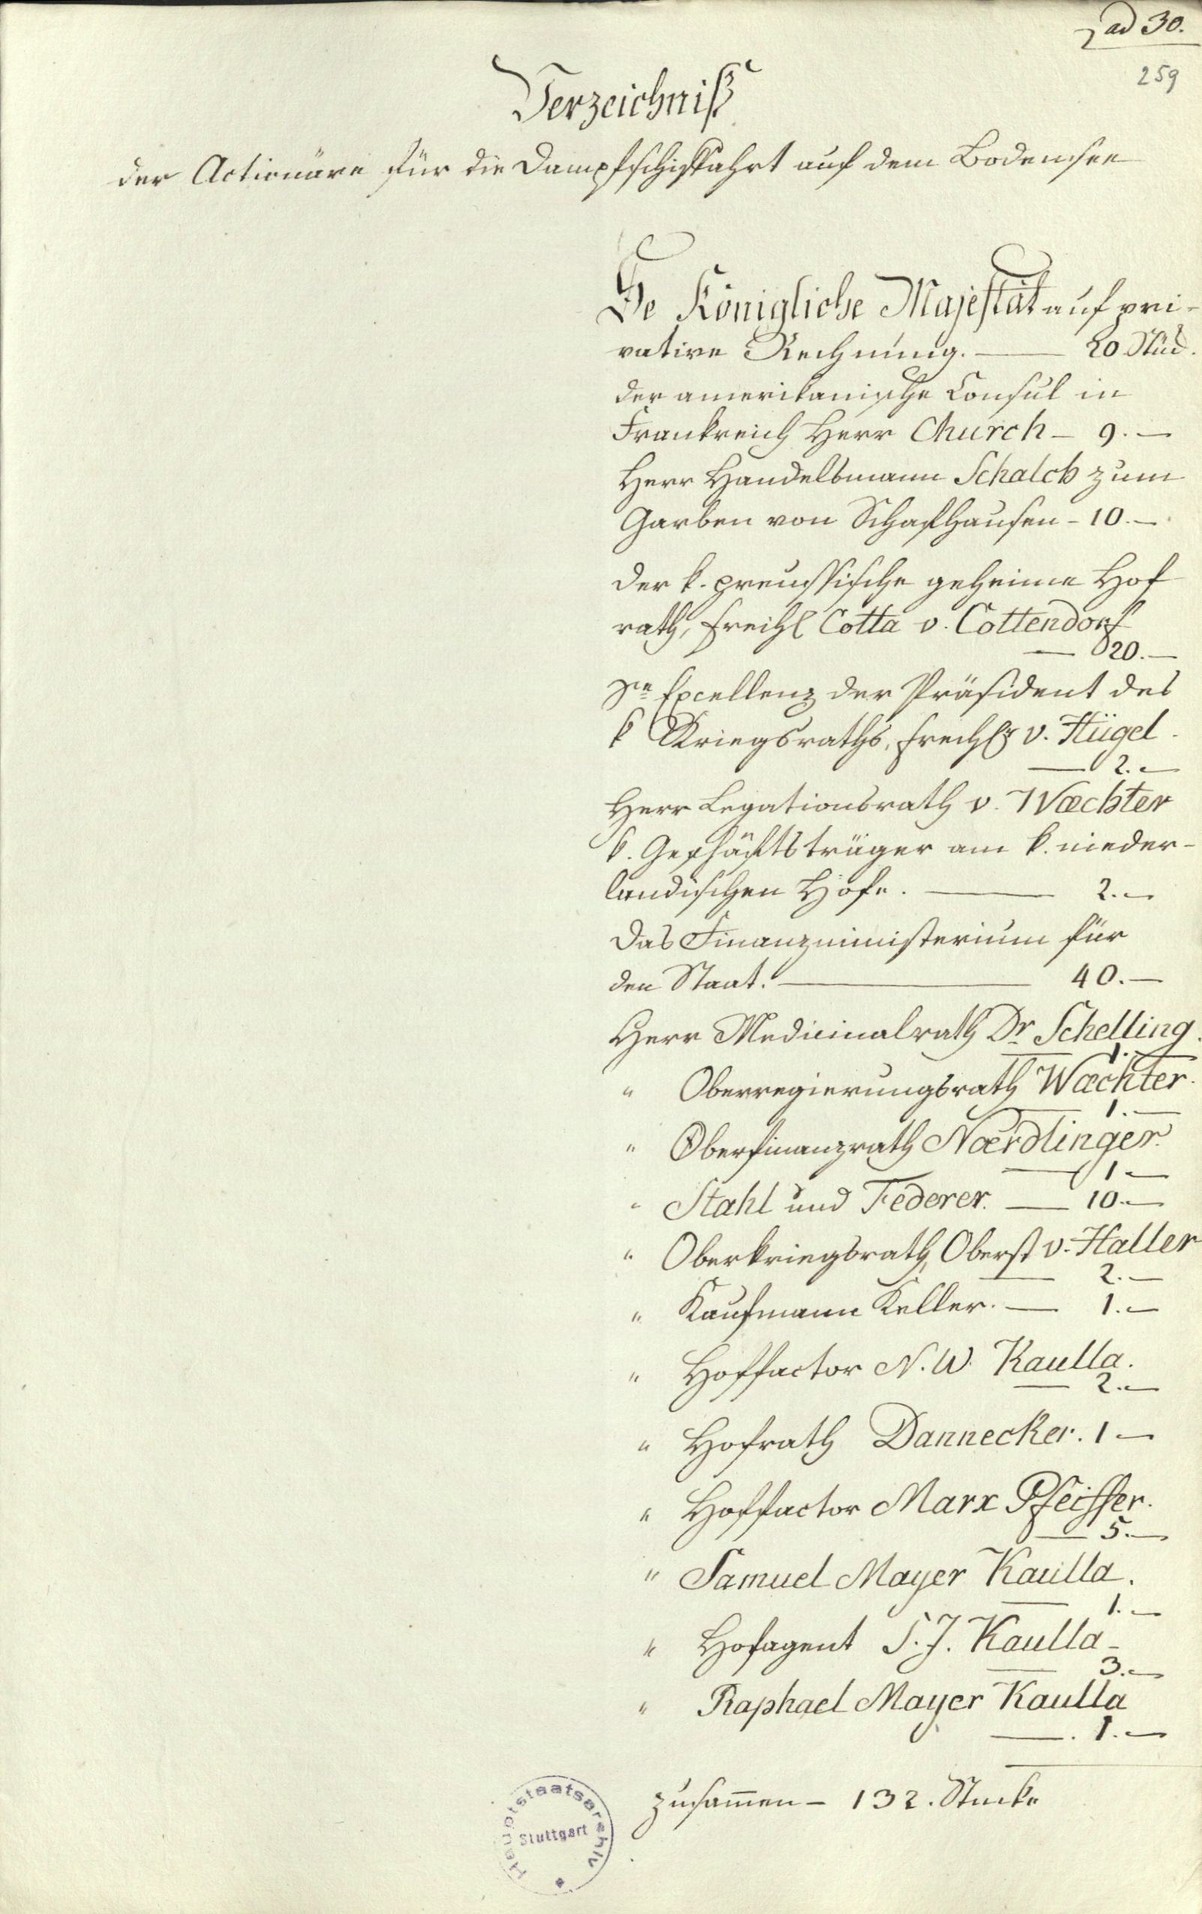 ad 30.
259
Verzeichniß
der Actionäre für die Dampfschiffahrt auf dem Bodensee
Se Königliche Majestät auf pri-
vative Rechnung. — 20 Stück.
der amerikanische Consul in
Frankreich Herr Church - 9. —
Herr Handelsmann Schalch zum
Garben von Schafhausen - 10. —
der k. preussische geheime Hof
rath, Freih Cotta v. Cottendorf
— 20. —
Se Excellenz der Präsident des
k Kriegsraths, Freih v. Hügel.
— 2. —
Herr Legationsrath v. Wæchter
k. Geschäftsträger am k. nieder-
ländischen Hofe. — 2. —
das Finanzministerium für
den Staat. — 40. —
Herr Medicinalrath Dr. Schelling.
— 1. —
" Oberregierungsrath Wæchter.
— 1. —
" Oberfinanzrath Nœrdlinger.
— 1 —
" Stahl und Federer. — 10. —
" Oberkriegsrath, Oberst v. Haller
— 2. —
" Kaufmann Keller. — 1. —
" Hoffactor N. W. Kaulla.
— 2. —
" Hofrath Dannecker. 1 —
" Hoffactor Marx Pfeiffer.
— 5. —
" Samuel Mayer Kaulla.
— 1. —
" Hofagent S. J. Kaulla -
— 3. —
" Raphael Mayer Kaulla
— 1. —
zusam̄en - 132. Stucke
Hauptstaatsarchiv
Stuttgart